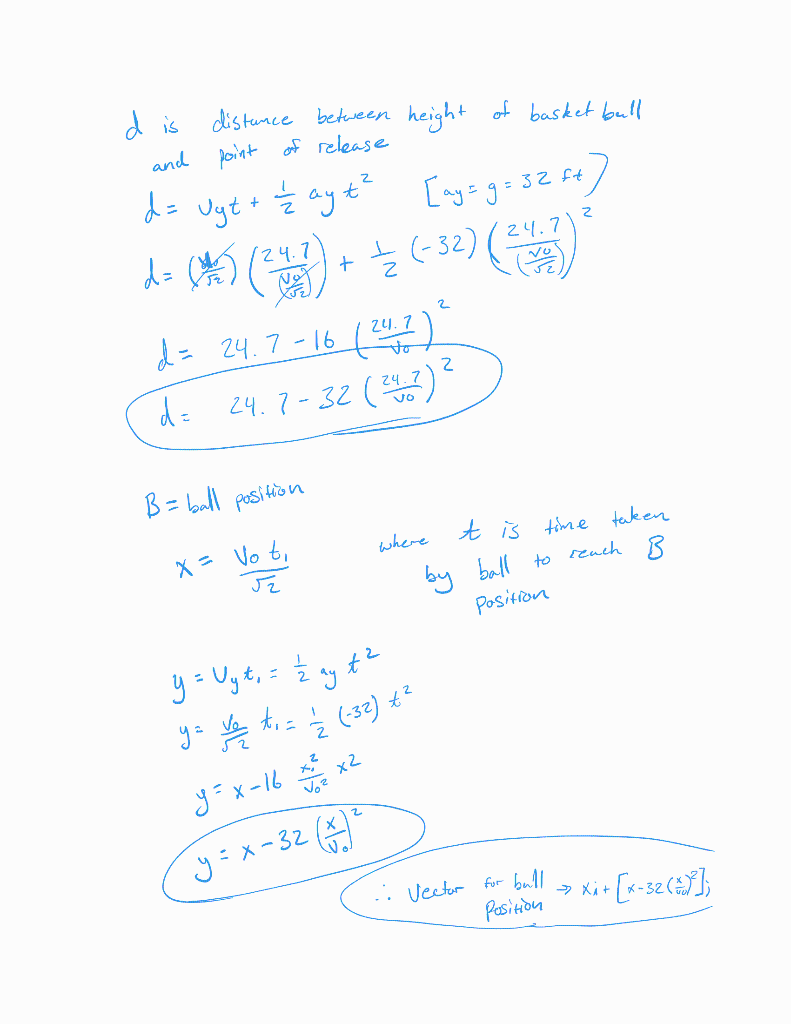 d is distance between height of basketball
and point of release
d = Vyt + 1/2 ay t² [ay = g = 32 ft]
d = (V₀/√2) (24.7/(V₀/√2)) + 1/2 (-32) (24.7/(V₀/√2))²
d = 24.7 - 16 (24.7/V₀)²
d = 24.7 - 32 (24.7/V₀)²
B = ball position
x = V₀ t₁/√2 where t is time taken
by ball to reach B
position
y = Vy t₁ = 1/2 ay t²
y = V₀/√2 t₁ = 1/2 (-32) t²
y = x - 16 x²/V₀² x2
y = x - 32 (x/V₀)²
∴ Vector for ball → xi + [x - 32 (x/V₀)²]j
position